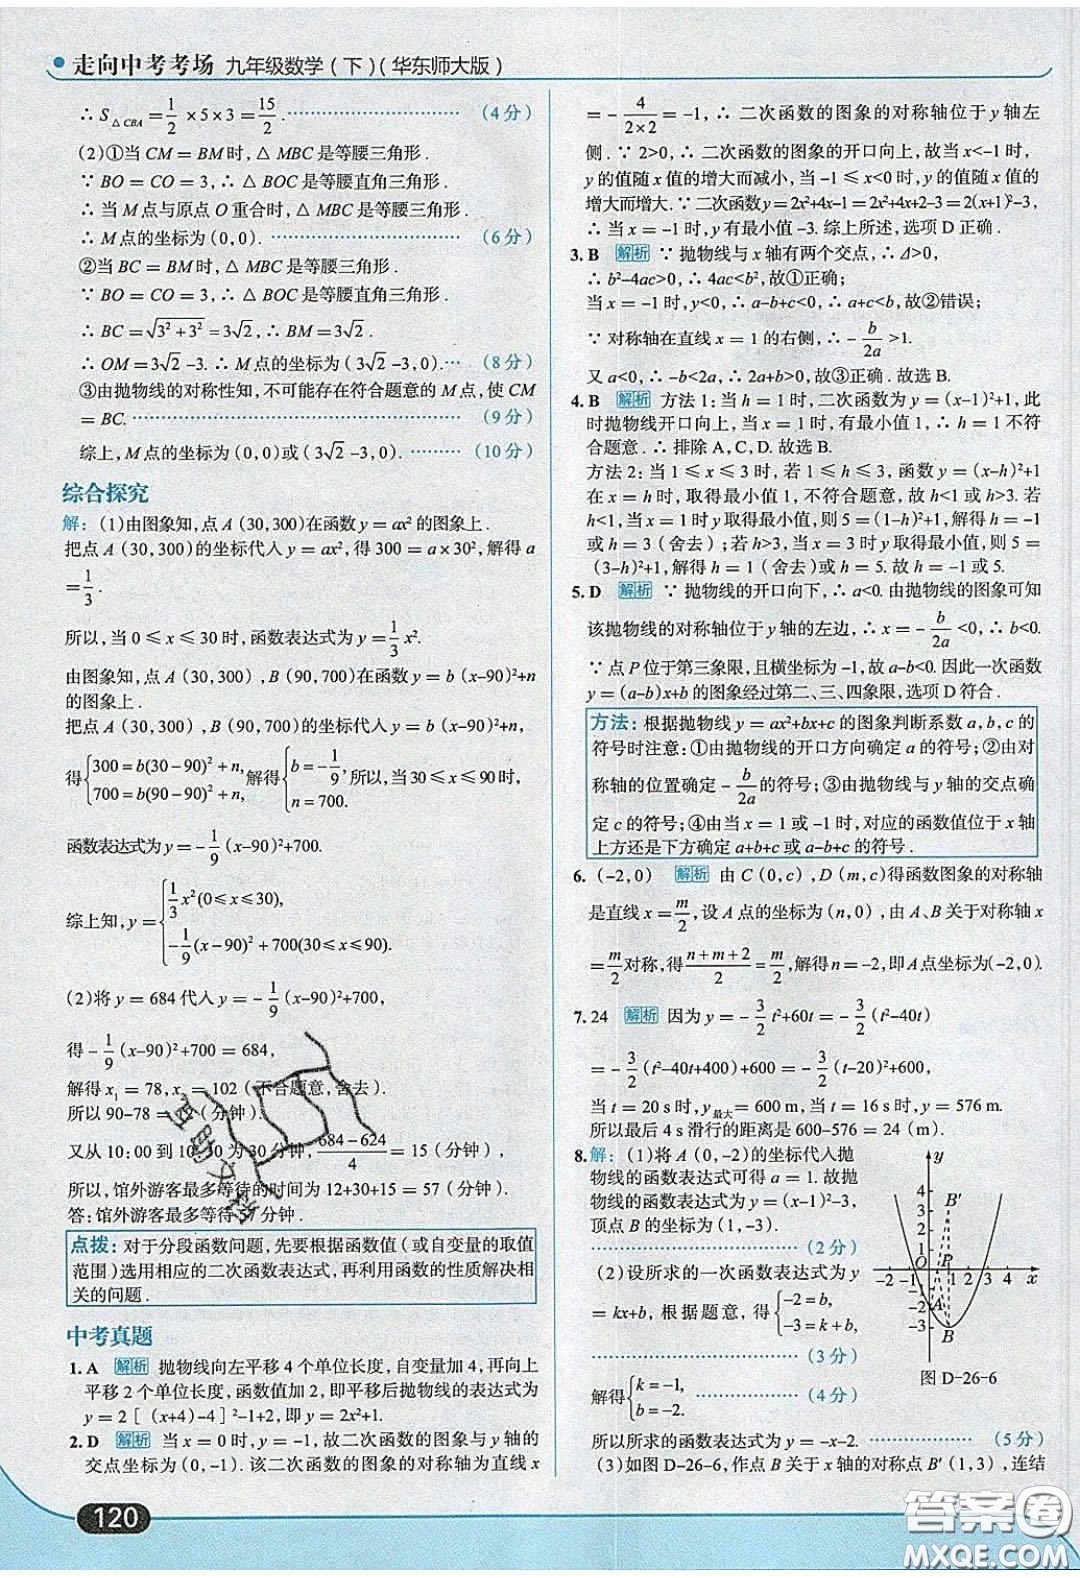 走向中考考场 九年级数学(下)(华东师大版)
∴ S△CBA = 1/2 ×5×3 = 15/2. (4分)
(2)①当 CM = BM时,△ MBC是等腰三角形.
∵ BO = CO = 3,∴ △ BOC是等腰直角三角形.
∴ 当 M点与原点 O重合时,△ MBC是等腰三角形.
∴ M点的坐标为(0,0). (6分)
②当 BC = BM时,△ MBC是等腰三角形.
∵ BO = CO = 3,∴ △ BOC是等腰直角三角形.
∴ BC = √(3²+3²) = 3√2,∴ BM = 3√2.
∴ OM = 3√2-3.∴ M点的坐标为(3√2-3,0). (8分)
③由抛物线的对称性知,不可能存在符合题意的M点,使CM
= BC. (9分)
综上,M点的坐标为(0,0)或(3√2-3,0). (10分)
综合探究
解:(1)由图象知,点A(30,300)在函数y = ax²的图象上.
把点A(30,300)的坐标代入y = ax²,得300 = a×30²,解得a
= 1/3.
所以,当0 ≤ x ≤ 30时,函数表达式为y = 1/3 x².
由图象知,点A(30,300),B(90,700)在函数y = b(x-90)²+n
的图象上.
把点A(30,300),B(90,700)的坐标代入y = b(x-90)²+n,
得{300 = b(30-90)²+n, 700 = b(90-90)²+n, 解得{b = -1/9, n = 700. 所以,当30 ≤ x ≤ 90时,
函数表达式为y = -1/9(x-90)²+700.
综上知,y = {1/3 x²(0≤x≤30), -1/9(x-90)²+700(30≤x≤90).
(2)将y = 684代入y = -1/9(x-90)²+700,
得-1/9(x-90)²+700 = 684,
解得x₁ = 78,x₂ = 102(不合题意,舍去).
所以90-78 = 12(分钟).
又从10:00到10:30为30分钟,(684-624)/4 = 15(分钟),
所以,馆外游客最多等待的时间为12+30+15 = 57(分钟).
答:馆外游客最多等待57分钟.
点拨:对于分段函数问题,先要根据函数值(或自变量的取值
范围)选用相应的二次函数表达式,再利用函数的性质解决相
关的问题.
中考真题
1. A 解析 抛物线向左平移4个单位长度,自变量加4,再向上
平移2个单位长度,函数值加2,即平移后抛物线的表达式为
y = 2[(x+4)-4]²-1+2,即y = 2x²+1.
2. D 解析 当x = 0时,y = -1,故二次函数的图象与y轴的
交点坐标为(0,-1).该二次函数的图象的对称轴为直线x
= -4/(2×2) = -1,∴ 二次函数的图象的对称轴位于y轴左
侧.∵ 2>0,∴ 二次函数的图象的开口向上,故当x<-1时,
y的值随x值的增大而减小,当-1 ≤ x<0时,y的值随x值的
增大而增大.∵二次函数y = 2x²+4x-1 = 2x²+4x+2-3 = 2(x+1)²-3,
∴ 当x = -1时,y有最小值-3.综上所述,选项D正确.
3. B 解析 ∵ 抛物线与x轴有两个交点,∴ Δ>0,
∴ b²-4ac>0,∴ 4ac<b²,故①正确;
当x = -1时,y<0,∴ a-b+c<0,∴ a+c<b,故②错误;
∵ 对称轴在直线x = 1的右侧,∴ -b/2a >1.
又a<0,∴ -b<2a,∴ 2a+b>0,故③正确.故选B.
4. B 解析 方法1:当h = 1时,二次函数为y = (x-1)²+1,此
时抛物线开口向上,当x = 1时,y有最小值1,∴ h = 1不符
合题意.∴ 排除A,C,D.故选B.
方法2:当1 ≤ x ≤ 3时,若1 ≤ h ≤ 3,函数y = (x-h)²+1
在x = h时,取得最小值1,不符合题意,故h<1或h>3.若
h<1,当x = 1时y取得最小值,则5 = (1-h)²+1,解得h = -1
或h = 3(舍去);若h>3,当x = 3时y取得最小值,则5 =
(3-h)²+1,解得h = 1(舍去)或h = 5.故h = -1或5.
5. D 解析 ∵ 抛物线的开口向下,∴ a<0.由抛物线的图象可知
该抛物线的对称轴位于y轴的左边,∴ x = -b/2a <0,∴ b<0.
∵ 点P位于第三象限,且横坐标为-1,故a-b<0.因此一次函数
y = (a-b)x+b的图象经过第二、三、四象限,选项D符合.
方法:根据抛物线y = ax²+bx+c的图象判断系数a,b,c的
符号时注意:①由抛物线的开口方向确定a的符号;②由对
称轴的位置确定-b/2a的符号;③由抛物线与y轴的交点确
定c的符号;④由当x = 1或-1时,对应的函数值位于x轴
上方还是下方确定a+b+c或a-b+c的符号.
6. (-2,0) 解析 由C(0,c),D(m,c)得函数图象的对称轴
是直线x = m/2,设A点的坐标为(n,0),由A、B关于对称轴x
= m/2对称,得(n+m+2)/2 = m/2,解得n = -2,即A点坐标为(-2,0).
7. 24 解析 因为y = -3/2 t²+60t = -3/2(t²-40t)
= -3/2(t²-40t+400)+600 = -3/2(t-20)²+600,
当t = 20 s时,y最大 = 600 m,当t = 16 s时,y = 576 m.
所以最后4 s滑行的距离是600-576 = 24(m).
8. 解:(1)将A(0,-2)的坐标代入抛
物线的函数表达式可得a = 1.故抛
物线的函数表达式为y = (x-1)²-3,
顶点B的坐标为(1,-3).
(2分)
(2)设所求的一次函数表达式为y
= kx+b,根据题意,得{-2 = b, -3 = k+b,
(3分)
解得{k = -1, b = -2. (4分)
y
4
3
2
1
B′
-2 -1 O P 1 2 3 4 x
A
-3
B
图 D-26-6
所以所求的函数表达式为y = -x-2. (5分)
(3)如图D-26-6,作点B关于x轴的对称点B′(1,3),连结
120
答案卷
MXQE.COM